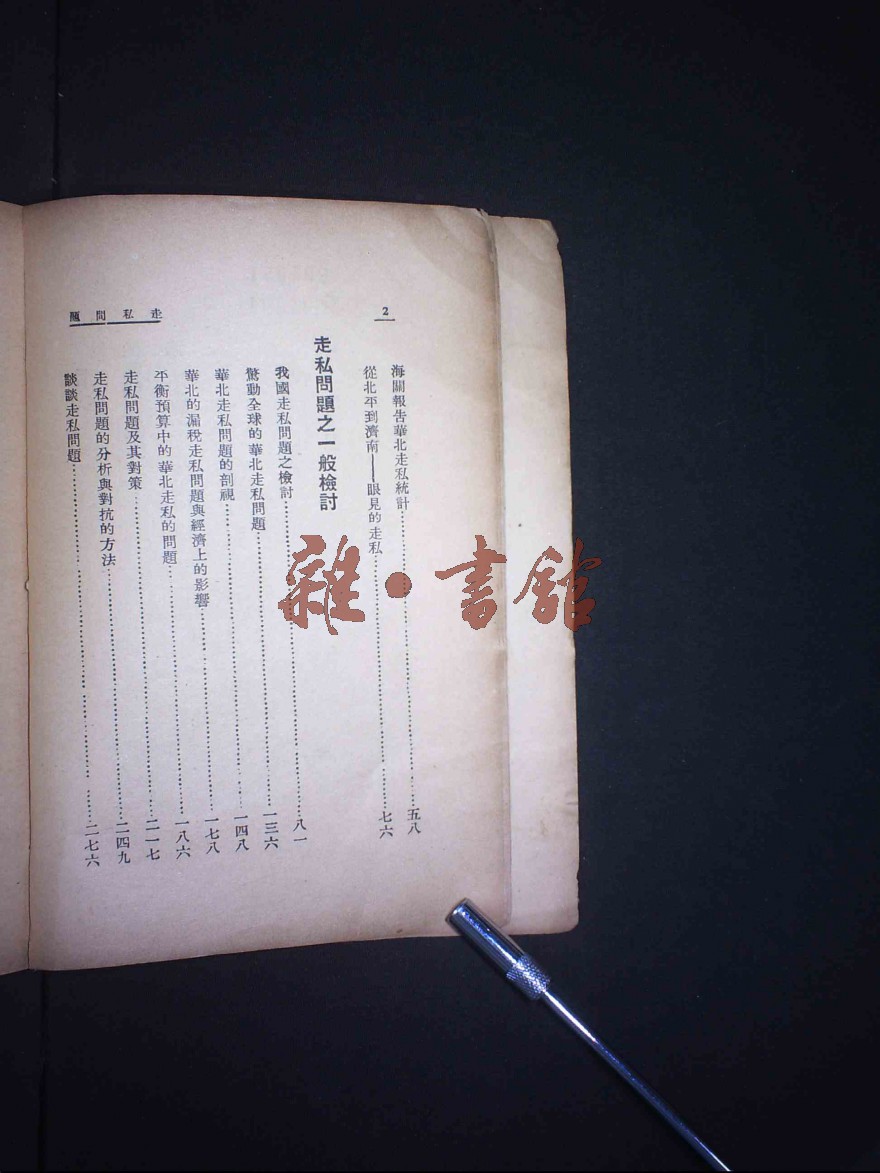 2
走私問題
海關報告華北走私統計……五八
從北平到濟南——眼見的走私……七六
走私問題之一般檢討
我國走私問題之檢討……八一
驚動全球的華北走私問題……一三六
華北走私問題的剖視……一四八
華北的漏稅走私問題與經濟上的影響……一七八
平衡預算中的華北走私的問題……一八六
走私問題及其對策……二一七
走私問題的分析與對抗的方法……二四九
談談走私問題……二七六
雜·書館